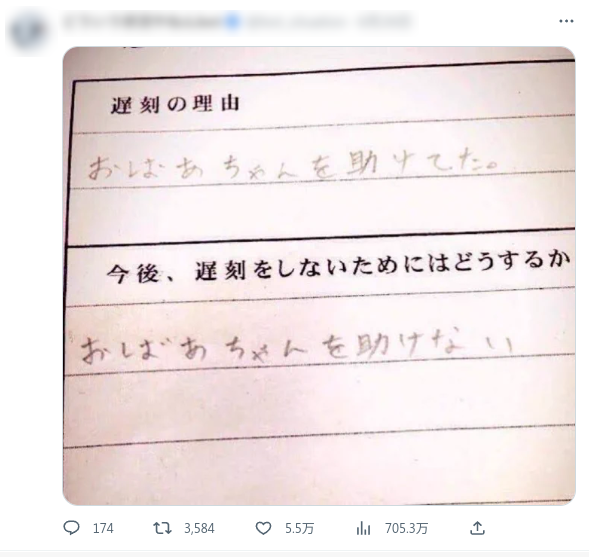 遅刻の理由
おばあちゃんを助けてた。
今後、遅刻をしないためにはどうするか
おばあちゃんを助けない
174 3,584 5.5万 705.3万